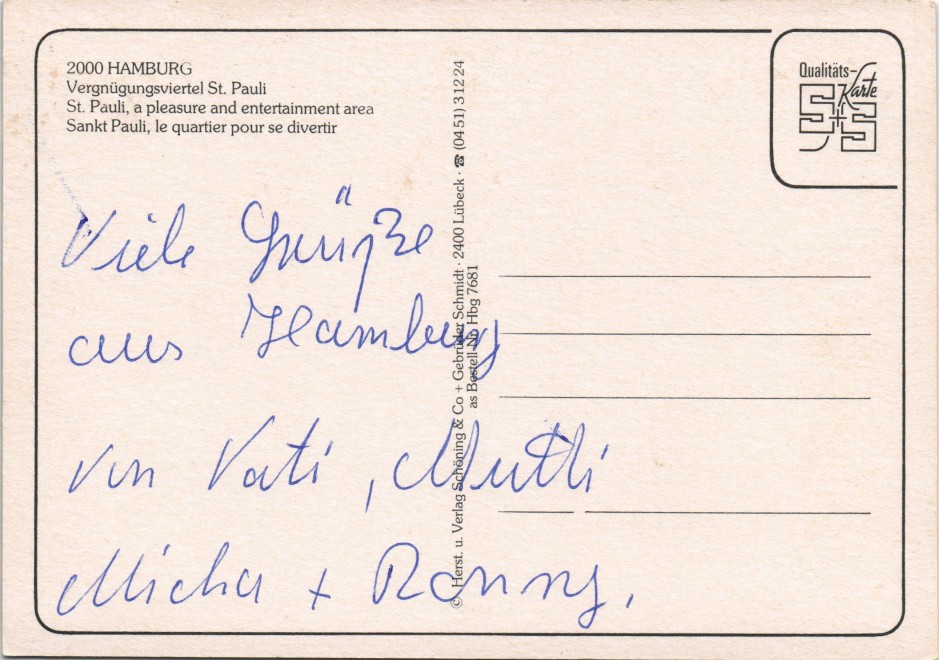 2000 HAMBURG
Vergnügungsviertel St. Pauli
St. Pauli, a pleasure and entertainment area
Sankt Pauli, le quartier pour se divertir
Qualitäts-
Karte
S+S
Viele Grüße
aus Hamburg
von Vati, Mutti
Micha + Ronny.
© Herst. u. Verlag Schöning & Co + Gebrüder Schmidt · 2400 Lübeck · ☎ (04 51) 3 12 24
as Bestell-Nr. Hbg 7681